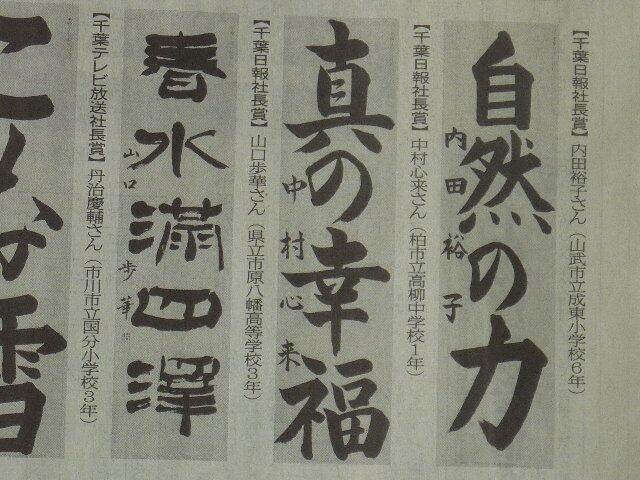 【千葉日報社長賞】内田裕子さん（山武市立成東小学校６年）
自然の力
内田裕子
【千葉日報社長賞】中村心来さん（柏市立高柳中学校１年）
真の幸福
中村心来
【千葉日報社長賞】山口歩華さん（県立市原八幡高等学校３年）
春水満四澤
山口歩華
【千葉テレビ放送社長賞】丹治慶輔さん（市川市立国分小学校３年）
こな雪